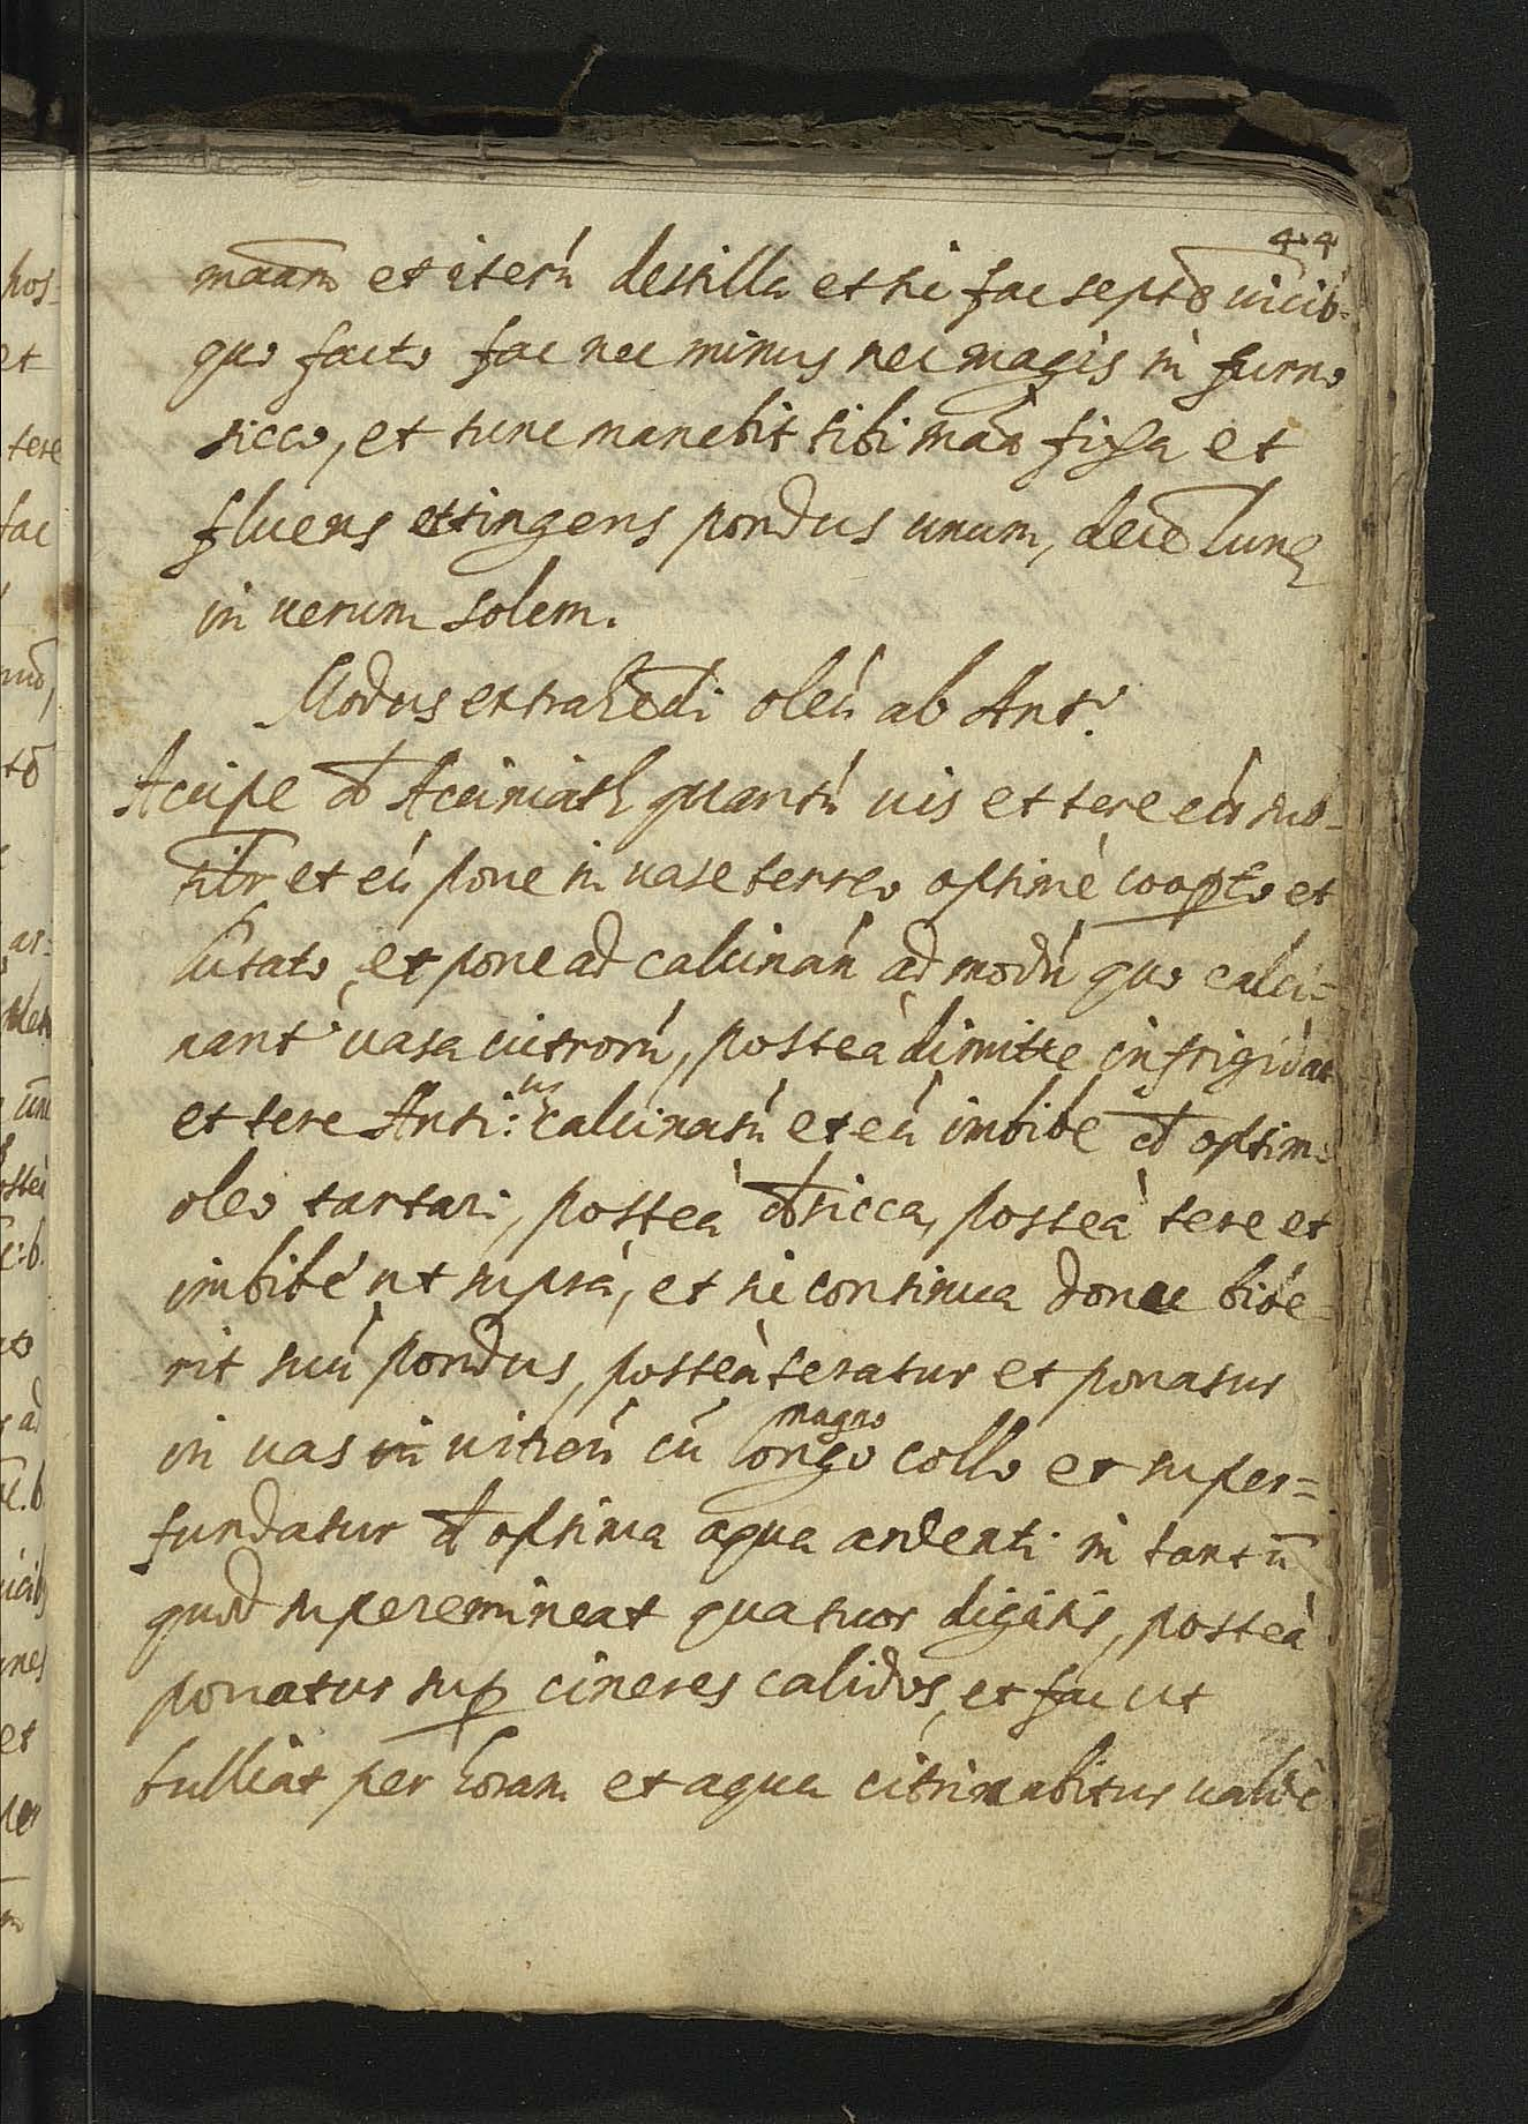 44
maãm et iterú destilla et sic fac septẽ uicib=
quo facto fac nec minus nec magis in furno
sicco, et tunc manebit tibi maã fixa et
fluens et tingens pondus unum, decẽ lunę
in uerum solem.
Modus extrahẽdi oleú ab Ant.º
Accipe Acciniath quantú uis et tere eú sub-
tilr et eú pone in uase terreo optimè coopto et
lutato, et pone ad calcinań ad modú quo calci=
nant uasa uitrorú, posteà dimitte infrigidar
et tere Anti:us calcinatú et eú imbibe cũ optimo
oleo tartari, posteà dsicca, posteà tere et
imbibe ut suprà, et sic continua donec bibe-
rit suú pondus, posteà teratur et ponatur
in uas in uitreú cú longo magno collo et super=
fundatur optima aqua ardenti in tantũ
quod superemineat quatuor digitis, posteà
ponatur sup cineres calidos, et fac ut
bulliat per horam et aqua citrinabitur ualdè
pos-
et
tere
fac